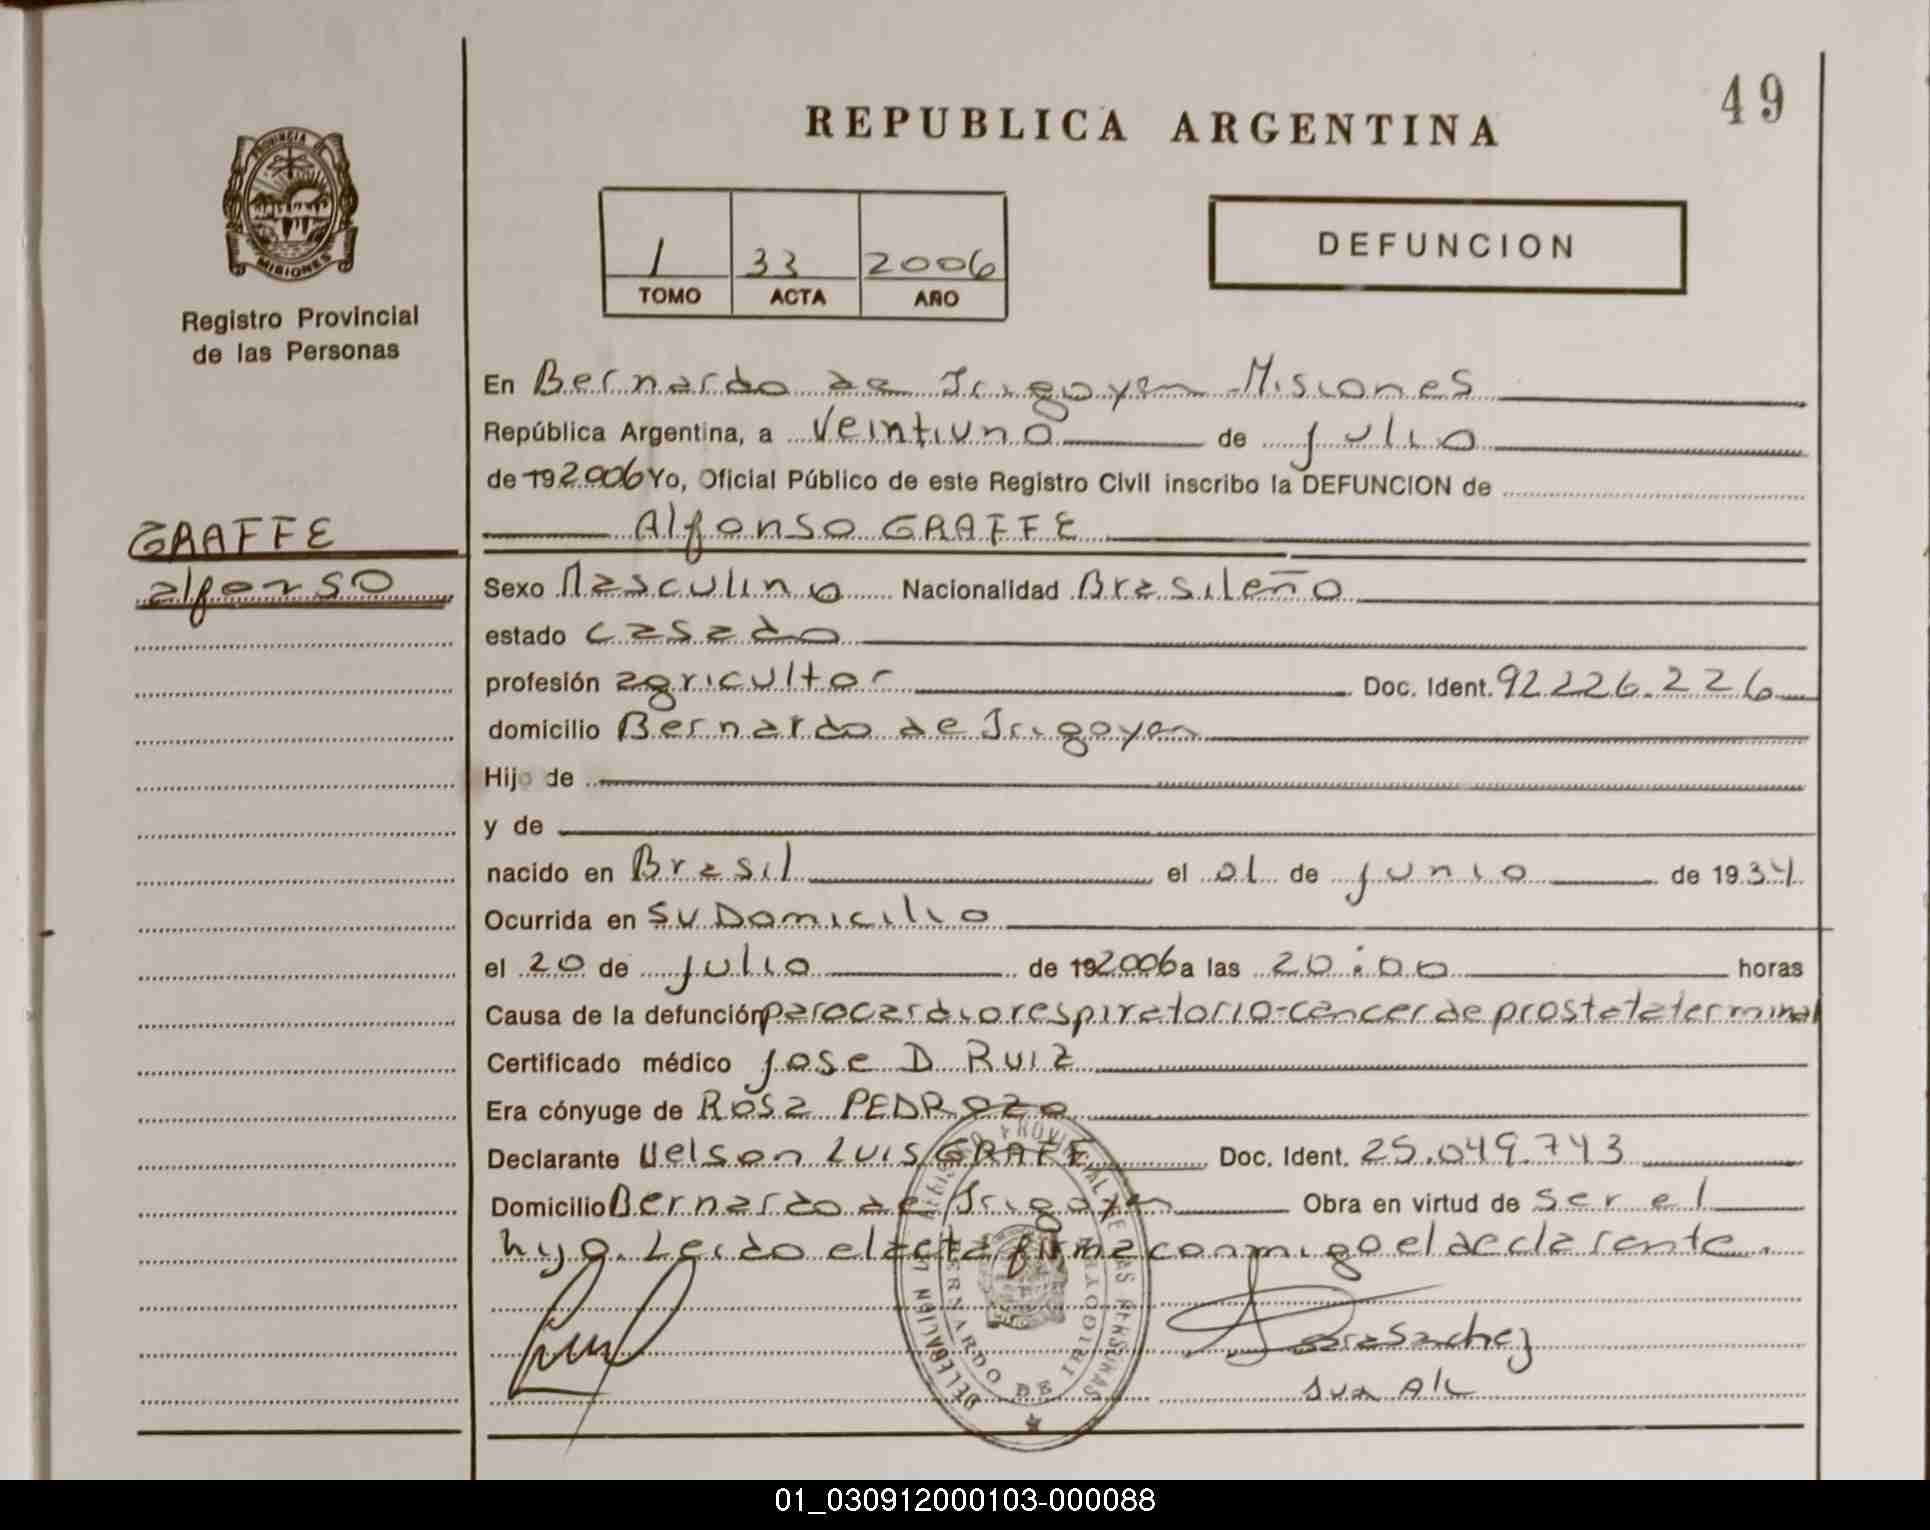 49
REPUBLICA ARGENTINA
PROVINCIA DE
MISIONES
Registro Provincial
de las Personas
1 33 2006
TOMO ACTA AÑO
DEFUNCION
En Bernardo de Irigoyen - Misiones
República Argentina, a Veintiuno de julio
de 192006 Yo, Oficial Público de este Registro Civil inscribo la DEFUNCION de
Alfonso GRAFFE
GRAFFE
alfonso
Sexo Masculino Nacionalidad Brasileño
estado casado
profesión agricultor Doc. Ident. 92.226.226
domicilio Bernardo de Irigoyen
Hijo de
y de
nacido en Brasil el 01 de junio de 1934
Ocurrida en su Domicilio
el 20 de julio de 192006 a las 20:00 horas
Causa de la defunción parocardiorespiratorio-cancer de prostata terminal
Certificado médico jose D RUIZ
Era cónyuge de Rosa PEDROZO
Declarante Nelson Luis GRAFE Doc. Ident. 25.049.743
Domicilio Bernardo de Irigoyen Obra en virtud de ser el
hijo. Leido el acta firma conmigo el declarante.
REGISTRO PROVINCIAL DE LAS PERSONAS
DELEGACION
BERNARDO DE IRIGOYEN
01_030912000103-000088